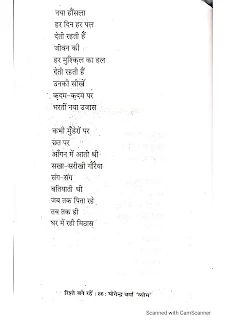 नया हौंसला
हर दिन हर पल
देती रहती हैं
जीवन की
हर मुश्किल का हल
देती रहती हैं
उनकी सीखें
क़दम-क़दम पर
भरतीं नया उजास
कभी मुँडेरों पर
छत पर
आँगन में आती थी
सखा-सरीखी गौरैया
संग-संग
बतियाती थी
जब तक पिता रहे
तब तक ही
घर में रही मिठास
रिश्ते बने रहें | 86 : योगेन्द्र वर्मा 'व्योम'
Scanned with CamScanner